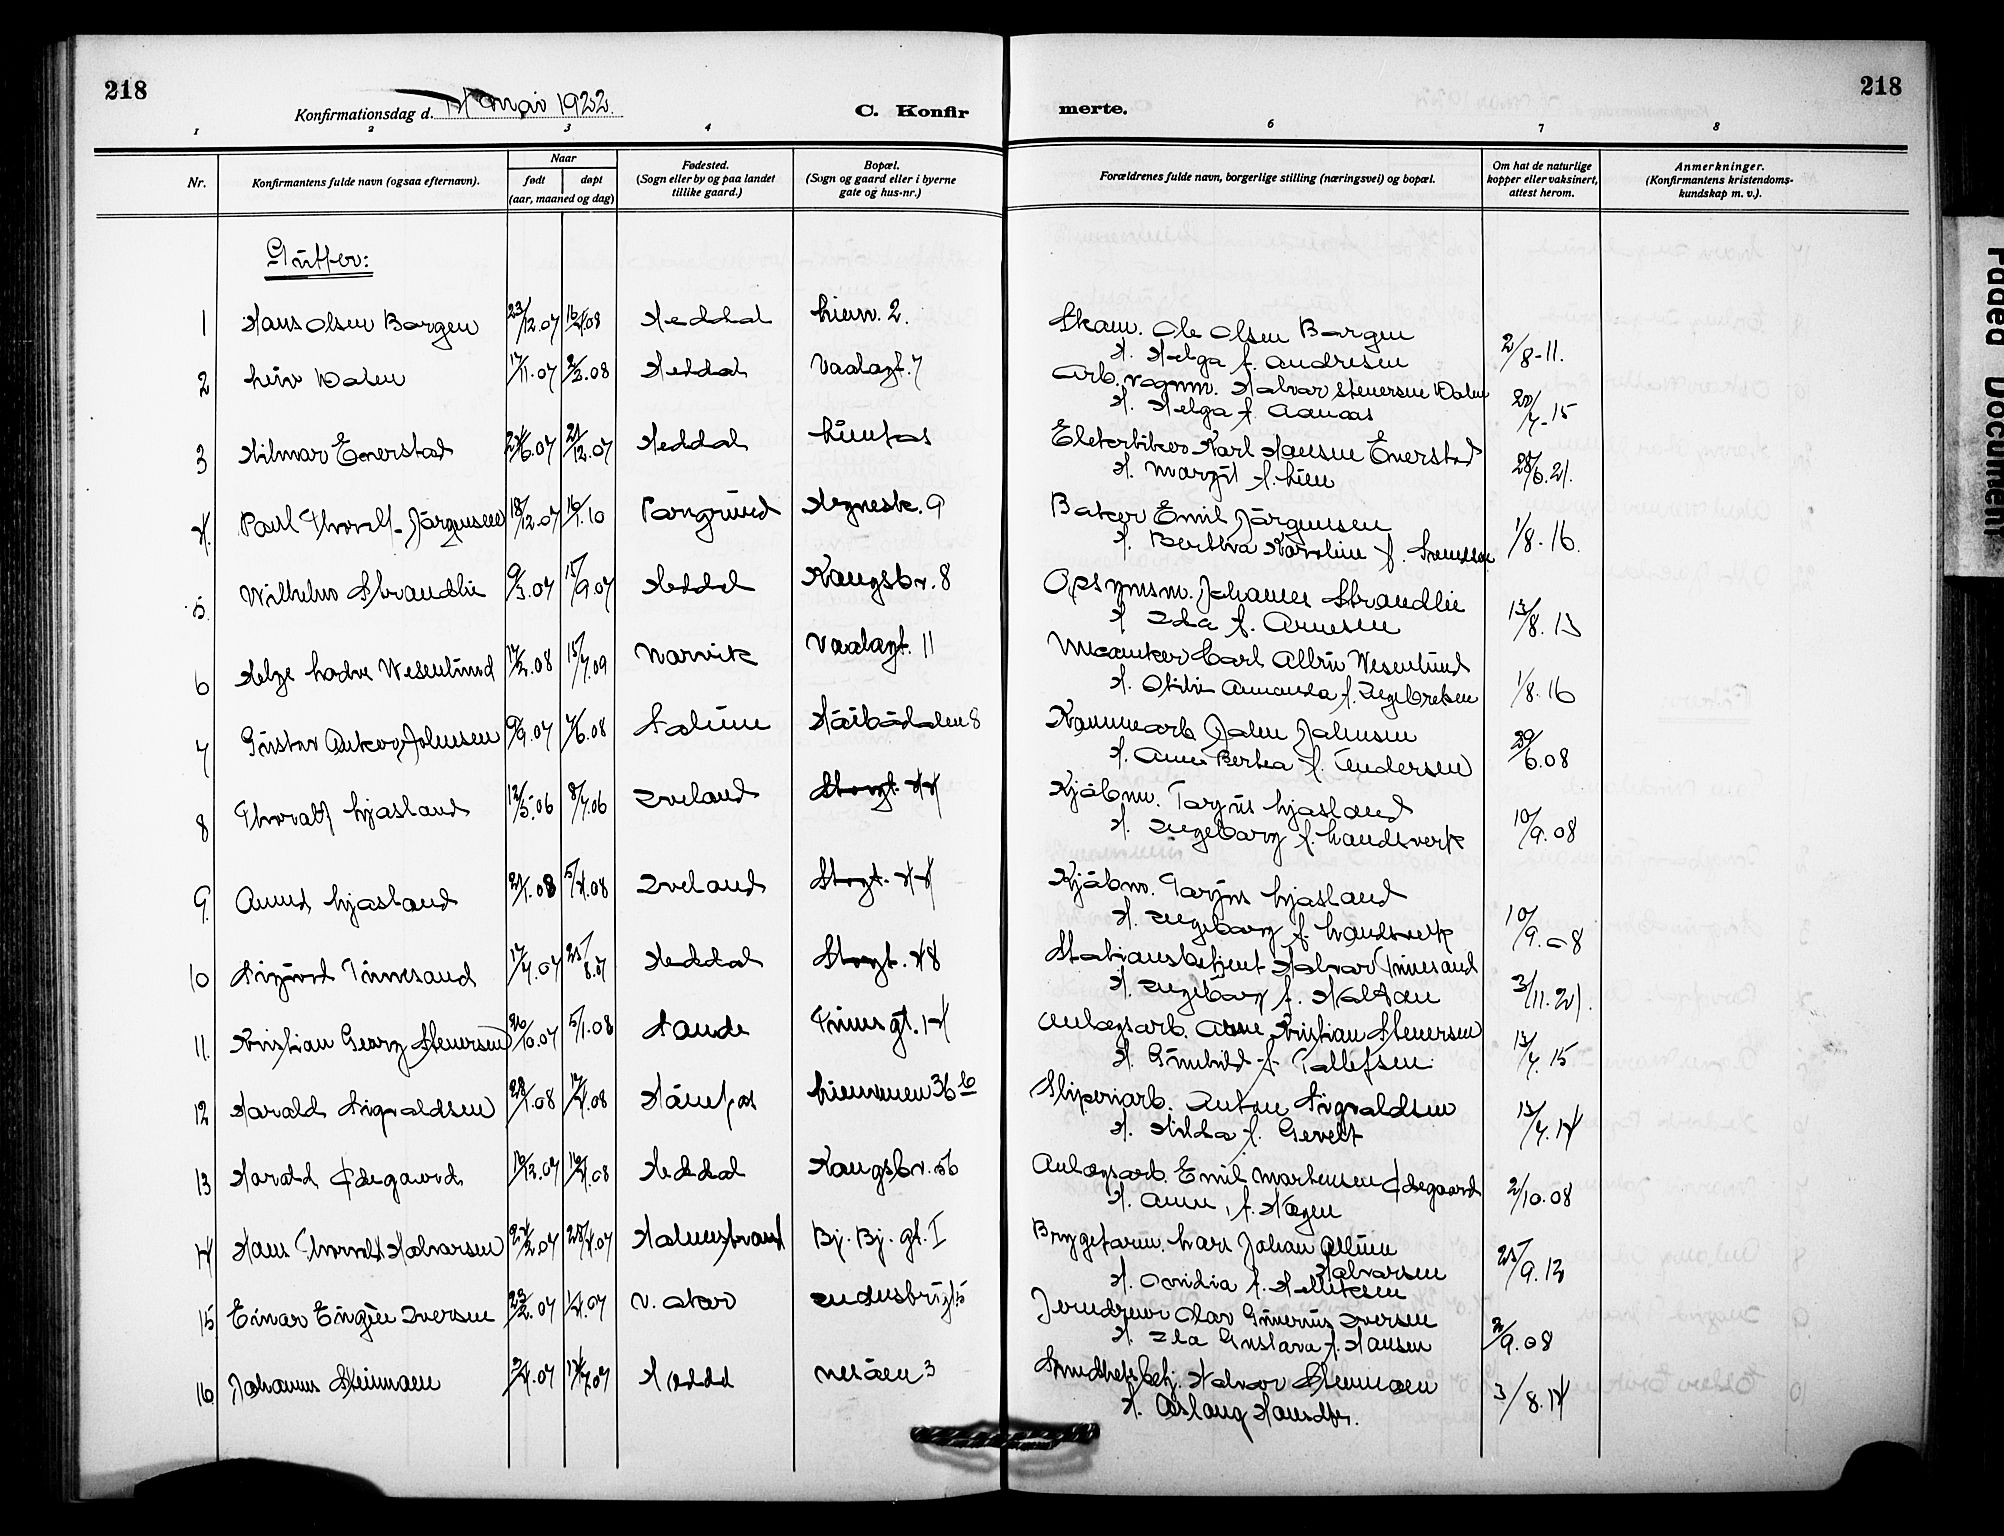 218
Konfirmationsdag d. 14 mai 1922.
C. Konfir
merte.
218
1 2 3 4 5 6 7 8
Nr.
Konfirmantens fulde navn (ogsaa efternavn).
Naar
født
døpt
(aar, maaned og dag)
Fødested.
(Sogn eller by og paa landet
tillike gaard.)
Bopæl.
(Sogn og gaard eller i byerne
gate og hus-nr.)
Forældrenes fulde navn, borgerlige stilling (næringsvei) og bopæl.
Om hat de naturlige
kopper eller vaksinert,
attest herom.
Anmerkninger.
(Konfirmantens kristendoms-
kundskap m. v.).
Gutter:
1 Hans Olsen Borgen 23/12.07 16/4.08 Heddal Lien. 2. Skom. Ole Olsen Borgen
H. Helga f. Andresen 2/8-11.
2 Leiv Dalen 17/11.07 2/2.08 Heddal Vaalagt. 7 Arb. Halvor Stenersen Dalen
H. Helga f. Aanaas 20/7-15
3 Hilmar Enerstad 24/6.07 21/12.07 Heddal Lienfos Karl Hansen Enerstad
H. Margit f. Lien 28/6.21.
4 Poul Thoralf Jørgensen 18/12.07 16/1.10 Porsgrund Hegnesk. 9 Baker Emil Jørgensen
H. Berthra Karoline f. Svendsen 1/8-16.
5 Wilhelm Strandlie 9/3.07 15/9.07 Heddal Kongsbv. 8 Opsynsm. Johannes Strandlie
H. Ida f. Arnesen 13/8.13
6 Helge Wesenlund 17/2.08 15/7.09 Narvik Vaalagt. 11 Carl Albin Wesenlund
H. Otilie Amanda f. Ingebretsen 1/8-16
7 Gustav Anker Johnsen 9/9.07 7/6.08 Solum 8 John Johnsen
H. Anne Bertea f. Andersen 29/6.08
8 Thoralf Ljosland 12/5.06 8/7.06 Iveland Storgt. 44 Kjøbm. Torjus Ljosland
H. Ingeborg f. Landsverk 10/9.08
9 Anund Ljosland 21/1.08 5/4.08 Iveland Storgt. 44 Kjøbm. Torjus Ljosland
H. Ingeborg f. Landsverk 10/9.08
10 Sigurd Tinnesand 17/7.07 25/8.07 Heddal Storgt. 48 Stationsbetjent Halvor Tinnesand
H. Ingeborg f. 3/11.21.
11. Kristian Georg Stenersen 26/10.07 5/1.08 Sande Tinnegt. 14 Anlægsarb. Arne Kristian Stenersen
H. Gunhild f. Tollefsen 13/7.15
12 Harald Sigvaldsen 28/1.08 12/4.08 Hønefos 36 b Sliperiarb. Anton Sigvaldsen
H. Hilda f. Gevelt 13/7.14
13 Harald Ødegaard 16/12.07 16/4.08 Heddal Kongsbv. 56 Anlægsarb. Emil Martensen Ødegaard
H. Anne f. Hagen 2/10.08
14 Hans Thorvald Halvorsen 24/2.07 28/4.07 Holmestrand Bj. Bj. gt. I Bryggeform. Lars Johan Albin
Halvorsen
H. Ovidia f. Helliksen 25/9.12
15 Einar Eugèn Iversen 23/2.07 1/4.07 V. Aker 5 Jerndreier Olav Gunerius Iversen
H. Ida Gustava f. Hansen 2/9.08
16 Johannes Steinmoen 2/4.07 14/7.07 Heddal Nesøen 3 Halvor Steinmoen
H. Aslaug Haandsdtr. 3/8.14
Faded Document